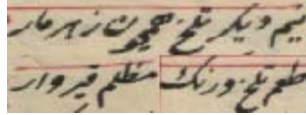 نیم دیگر تلخ همچون زهر مار
طعم تلخ و رنگ مظلم قیروار